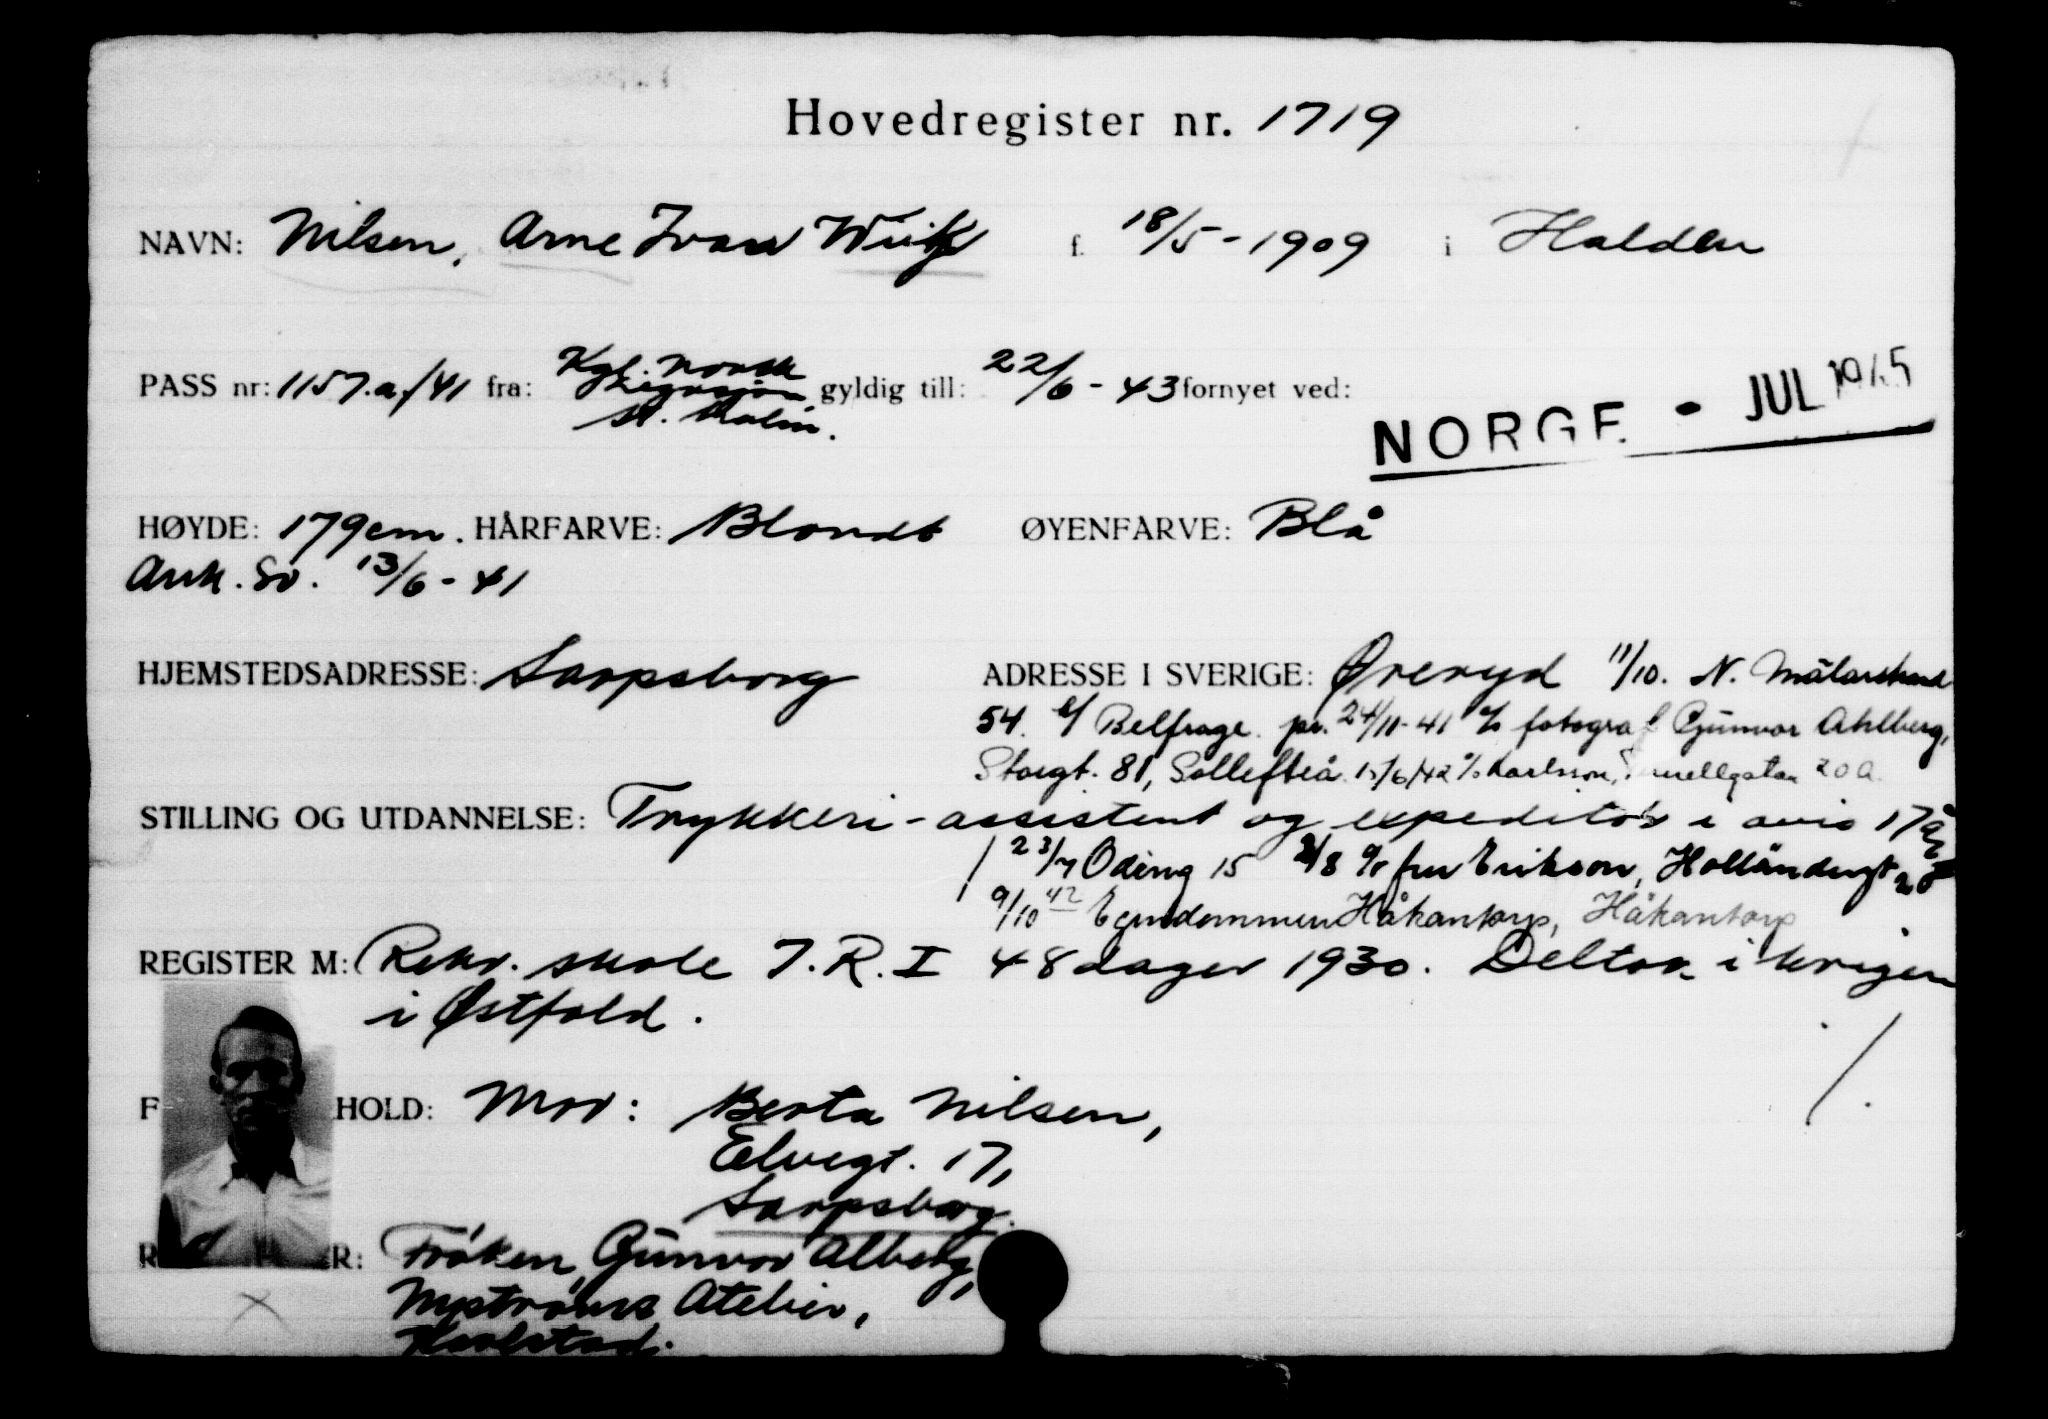 Hovedregister nr. 1719
NAVN: Nilsen, Arne Ivar Wiik f. 18/5-1909 i Halden
PASS nr: 1157.a/41 fra: Kgl. norsk Legasjon St.holm. gyldig till: 22/6-43 fornyet ved:
NORGE - JUL 1945
HØYDE: 179 cm. HÅRFARVE: Blondt ØYENFARVE: Blå
Ank. Sv. 13/6-41
HJEMSTEDSADRESSE: Sarpsborg ADRESSE I SVERIGE: Øreryd 11/10. N. Mälarstrand
54. c/ Belfrage. pr. 24/11-41 c/o fotograf Gunvor Ahlberg,
Storgt. 81, Sollefteå. 15/6/42 c/o Karlsson, 20 a.
STILLING OG UTDANNELSE: Trykkeri-assistent og expeditør i avis 17 år
23/7 Odeng 15 c/o fru Erikson, Holländergt
9/10 42 Egendommen Håkantorp, Håkantorp
REGISTER M: Rekr. skole I.R.I 48 dager 1930. Deltok i krigen
i Østfold.
F HOLD: Mor: Berta Nilsen,
Elvegt. 17,
Sarpsborg.
R R: Frøken Gunvor Alberg,
Nystrøms Atelier,
Karlstad.